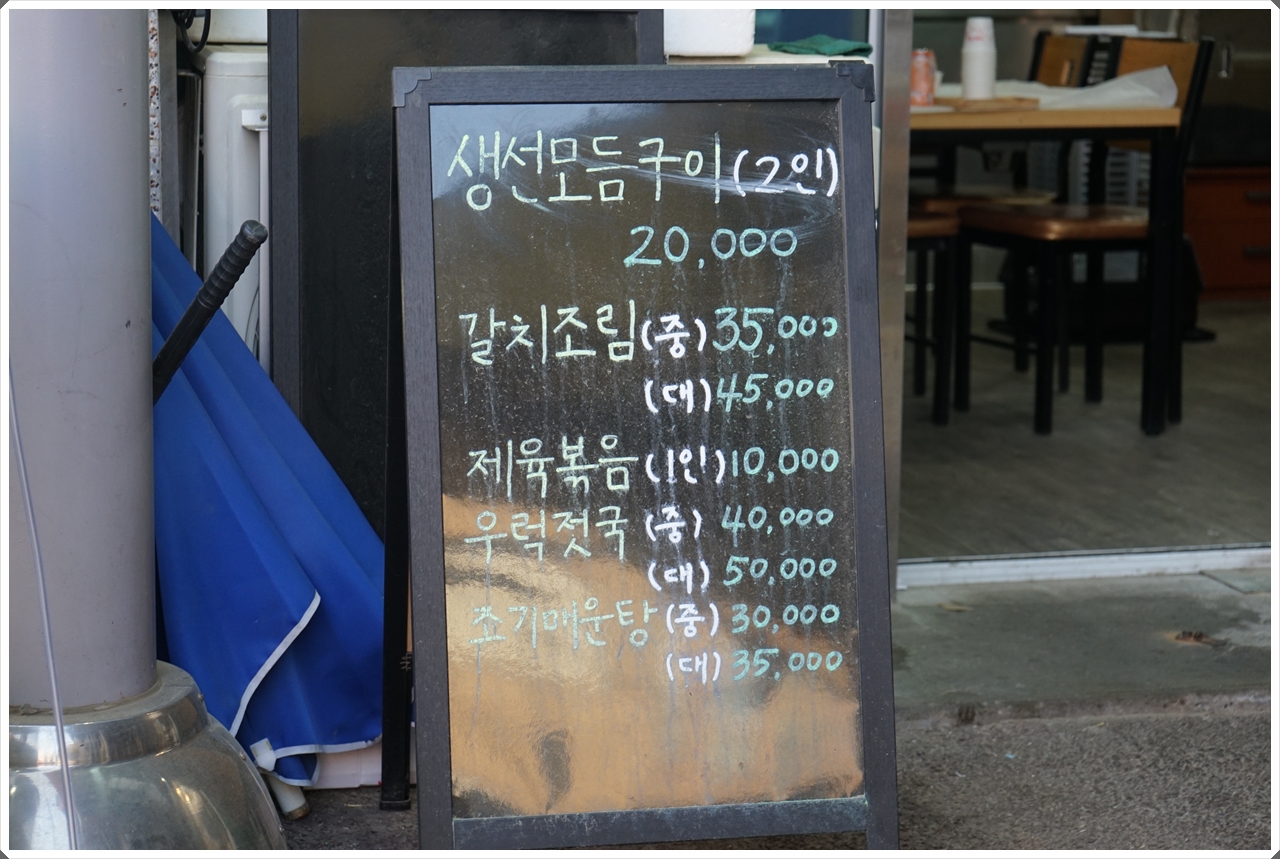 생선모듬구이(2인)
20,000
갈치조림(중)35,000
(대)45,000
제육볶음(1인)10,000
우럭젓국(중) 40,000
(대) 50,000
조기매운탕(중) 30,000
(대) 35,000